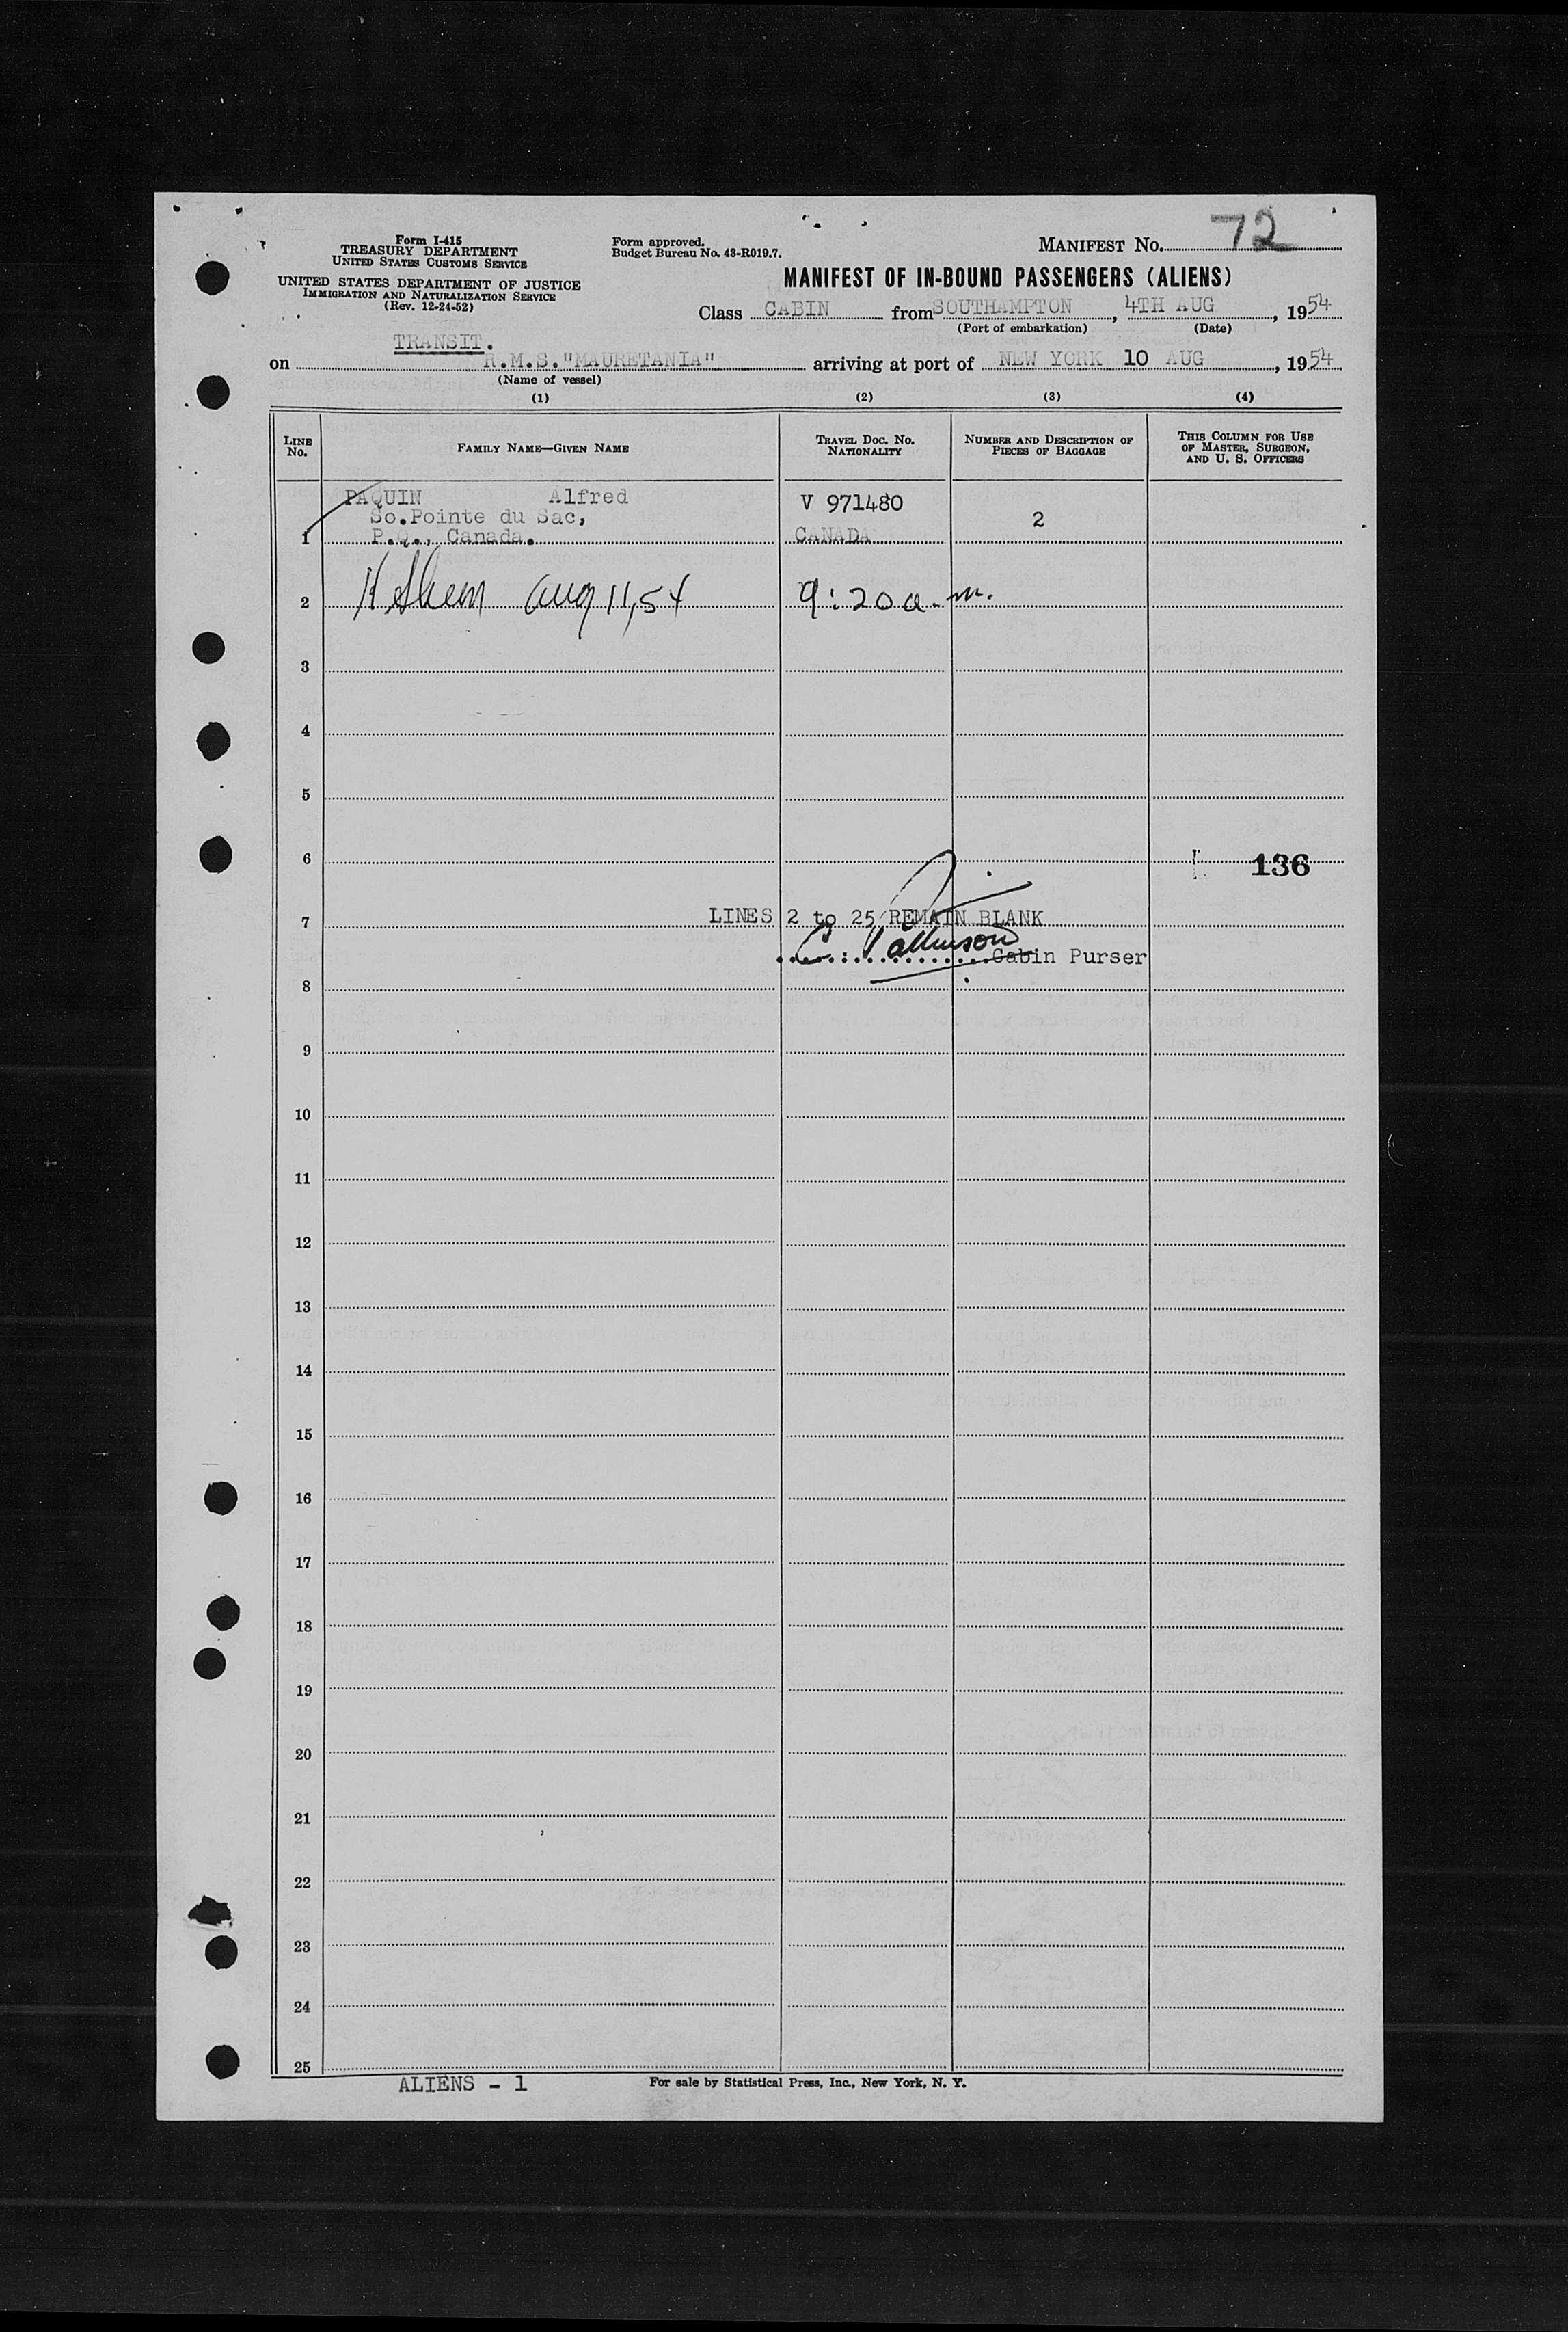 Form I-415
TREASURY DEPARTMENT
UNITED STATES CUSTOMS SERVICE
UNITED STATES DEPARTMENT OF JUSTICE
IMMIGRATION AND NATURALIZATION SERVICE
(Rev. 12-24-52)
Form approved.
Budget Bureau No. 43-R019.7.
MANIFEST No. 72
MANIFEST OF IN-BOUND PASSENGERS (ALIENS)
Class CABIN from SOUTHAMPTON, 4TH AUG, 1954
(Port of embarkation) (Date)
TRANSIT.
on R.M.S."MAURETANIA" arriving at port of NEW YORK 10 AUG, 1954
(Name of vessel)
(1) (2) (3) (4)
LINE No. FAMILY NAME—GIVEN NAME TRAVEL DOC. NO. NATIONALITY NUMBER AND DESCRIPTION OF PIECES OF BAGGAGE THIS COLUMN FOR USE OF MASTER, SURGEON, AND U. S. OFFICERS
PAQUIN Alfred V 971480
So.Pointe du Sac, 2
1 P.Q., Canada. CANADA
2 Aug 11, 54 9:20 a.m.
3
4
5
6 136
7 LINES 2 to 25 REMAIN BLANK
C. Cabin Purser
8
9
10
11
12
13
14
15
16
17
18
19
20
21
22
23
24
25
ALIENS - 1 For sale by Statistical Press, Inc., New York, N. Y.